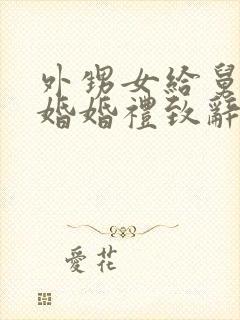 外甥女給舅
婚婚禮致辭
愛花